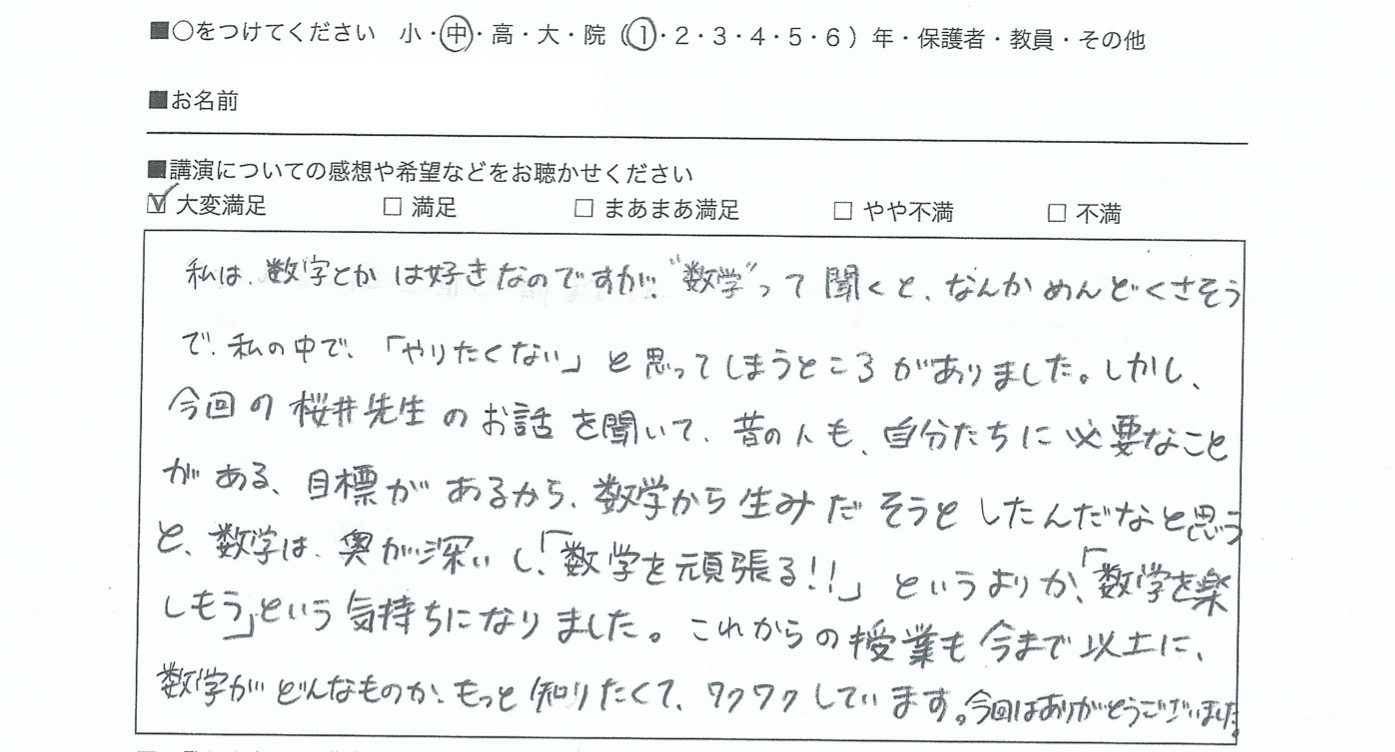 ■○をつけてください 小・中・高・大・院（1・2・3・4・5・6）年・保護者・教員・その他
■お名前
■講演についての感想や希望などをお聴かせください
☑ 大変満足 □ 満足 □ まあまあ満足 □ やや不満 □ 不満
私は、数字とかは好きなのですが、"数学"って聞くと、なんかめんどくさそう
で、私の中で、「やりたくない」と思ってしまうところがありました。しかし、
今回の桜井先生のお話を聞いて、昔の人も、自分たちに必要なこと
がある、目標があるから、数学から生みだそうとしたんだなと思う
と、数学は、奥が深いし、「数学を頑張る!!」というよりか、「数学を楽
しもう」という気持ちになりました。これからの授業も今まで以上に、
数学がどんなものか、もっと知りたくて、ワクワクしています。今回はありがとうございました。